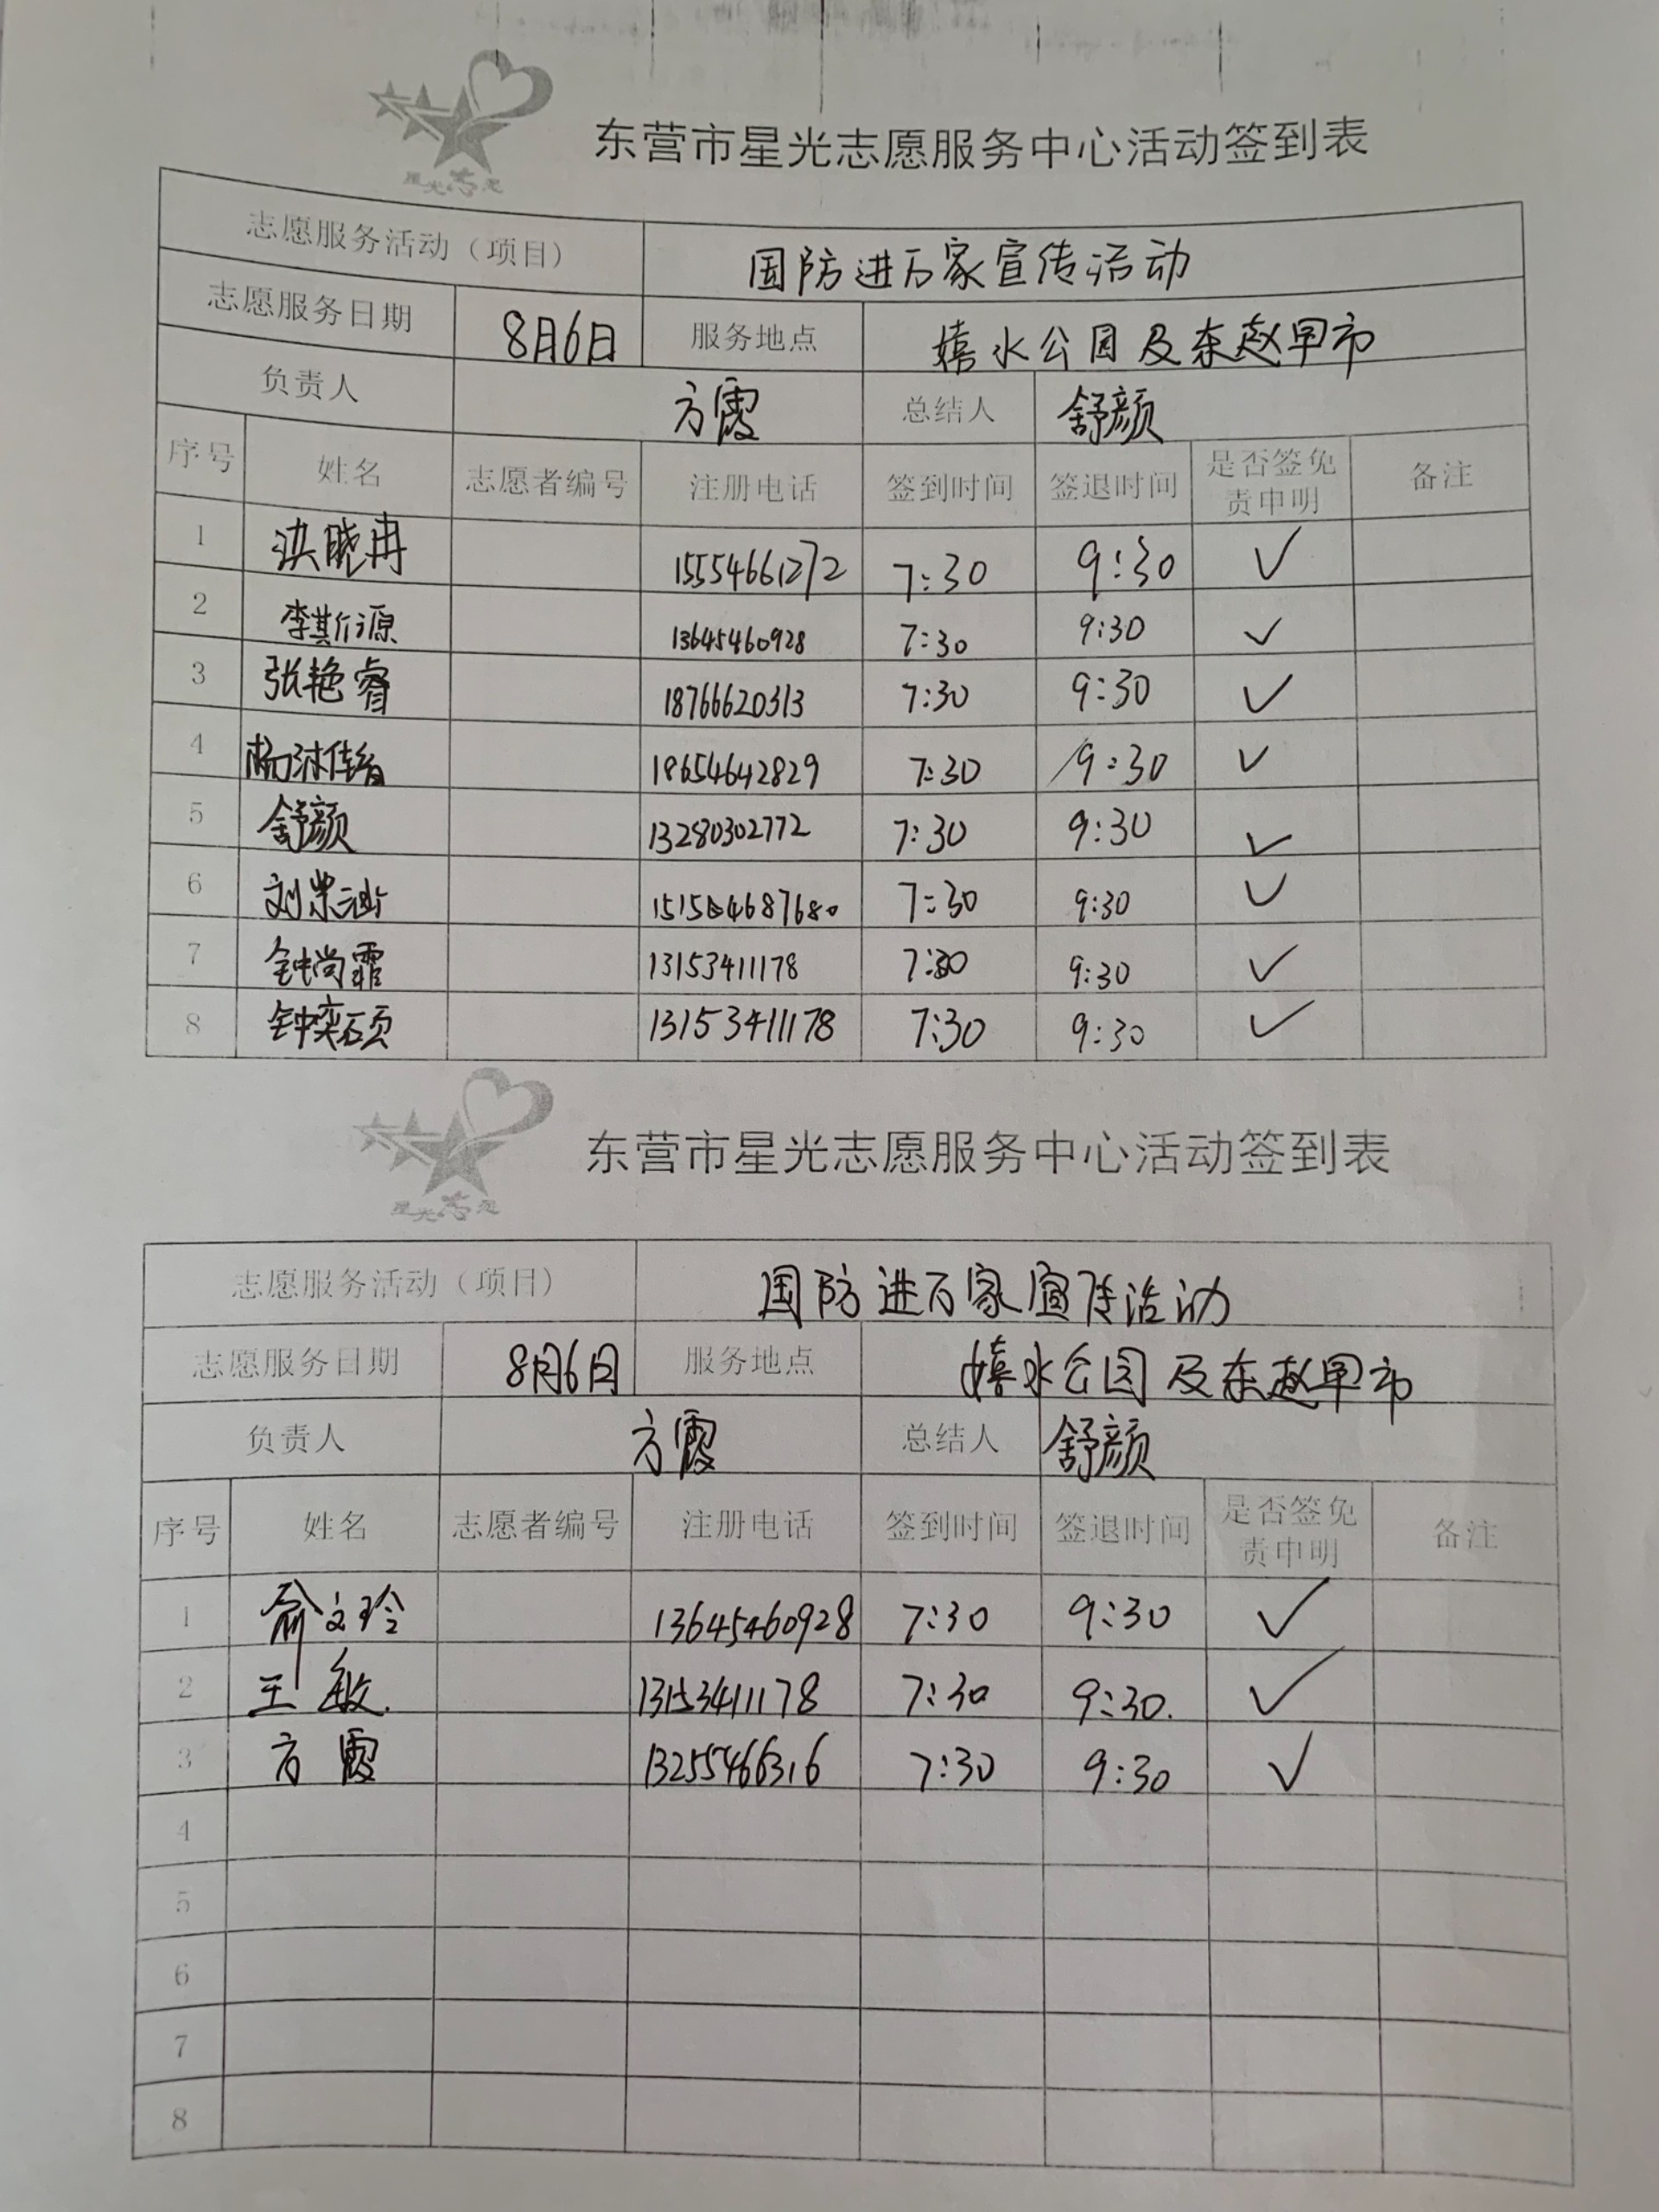 星光志愿
东营市星光志愿服务中心活动签到表
志愿服务活动（项目） 国防进万家宣传活动
志愿服务日期 8月6日 服务地点 嬉水公园及东赵早市
负责人 方霞 总结人 舒颜
序号 姓名 志愿者编号 注册电话 签到时间 签退时间 是否签免责申明 备注
1 洪晓冉 15554661272 7:30 9:30 ✓
2 李其衍源 13645460928 7:30 9:30 ✓
3 张艳睿 18766620313 7:30 9:30 ✓
4 杨 18654642829 7:30 9:30 ✓
5 舒颜 13280302772 7:30 9:30 ✓
6 刘 7:30 9:30 ✓
7 钟尚霏 13153411178 7:30 9:30 ✓
8 钟奕硕 13153411178 7:30 9:30 ✓
星光志愿
东营市星光志愿服务中心活动签到表
志愿服务活动（项目） 国防进万家宣传活动
志愿服务日期 8月6日 服务地点 嬉水公园及东赵早市
负责人 方霞 总结人 舒颜
序号 姓名 志愿者编号 注册电话 签到时间 签退时间 是否签免责申明 备注
1 俞文玲 13645460928 7:30 9:30 ✓
2 王敏 13153411178 7:30 9:30 ✓
3 方霞 13255466316 7:30 9:30 ✓
4
5
6
7
8